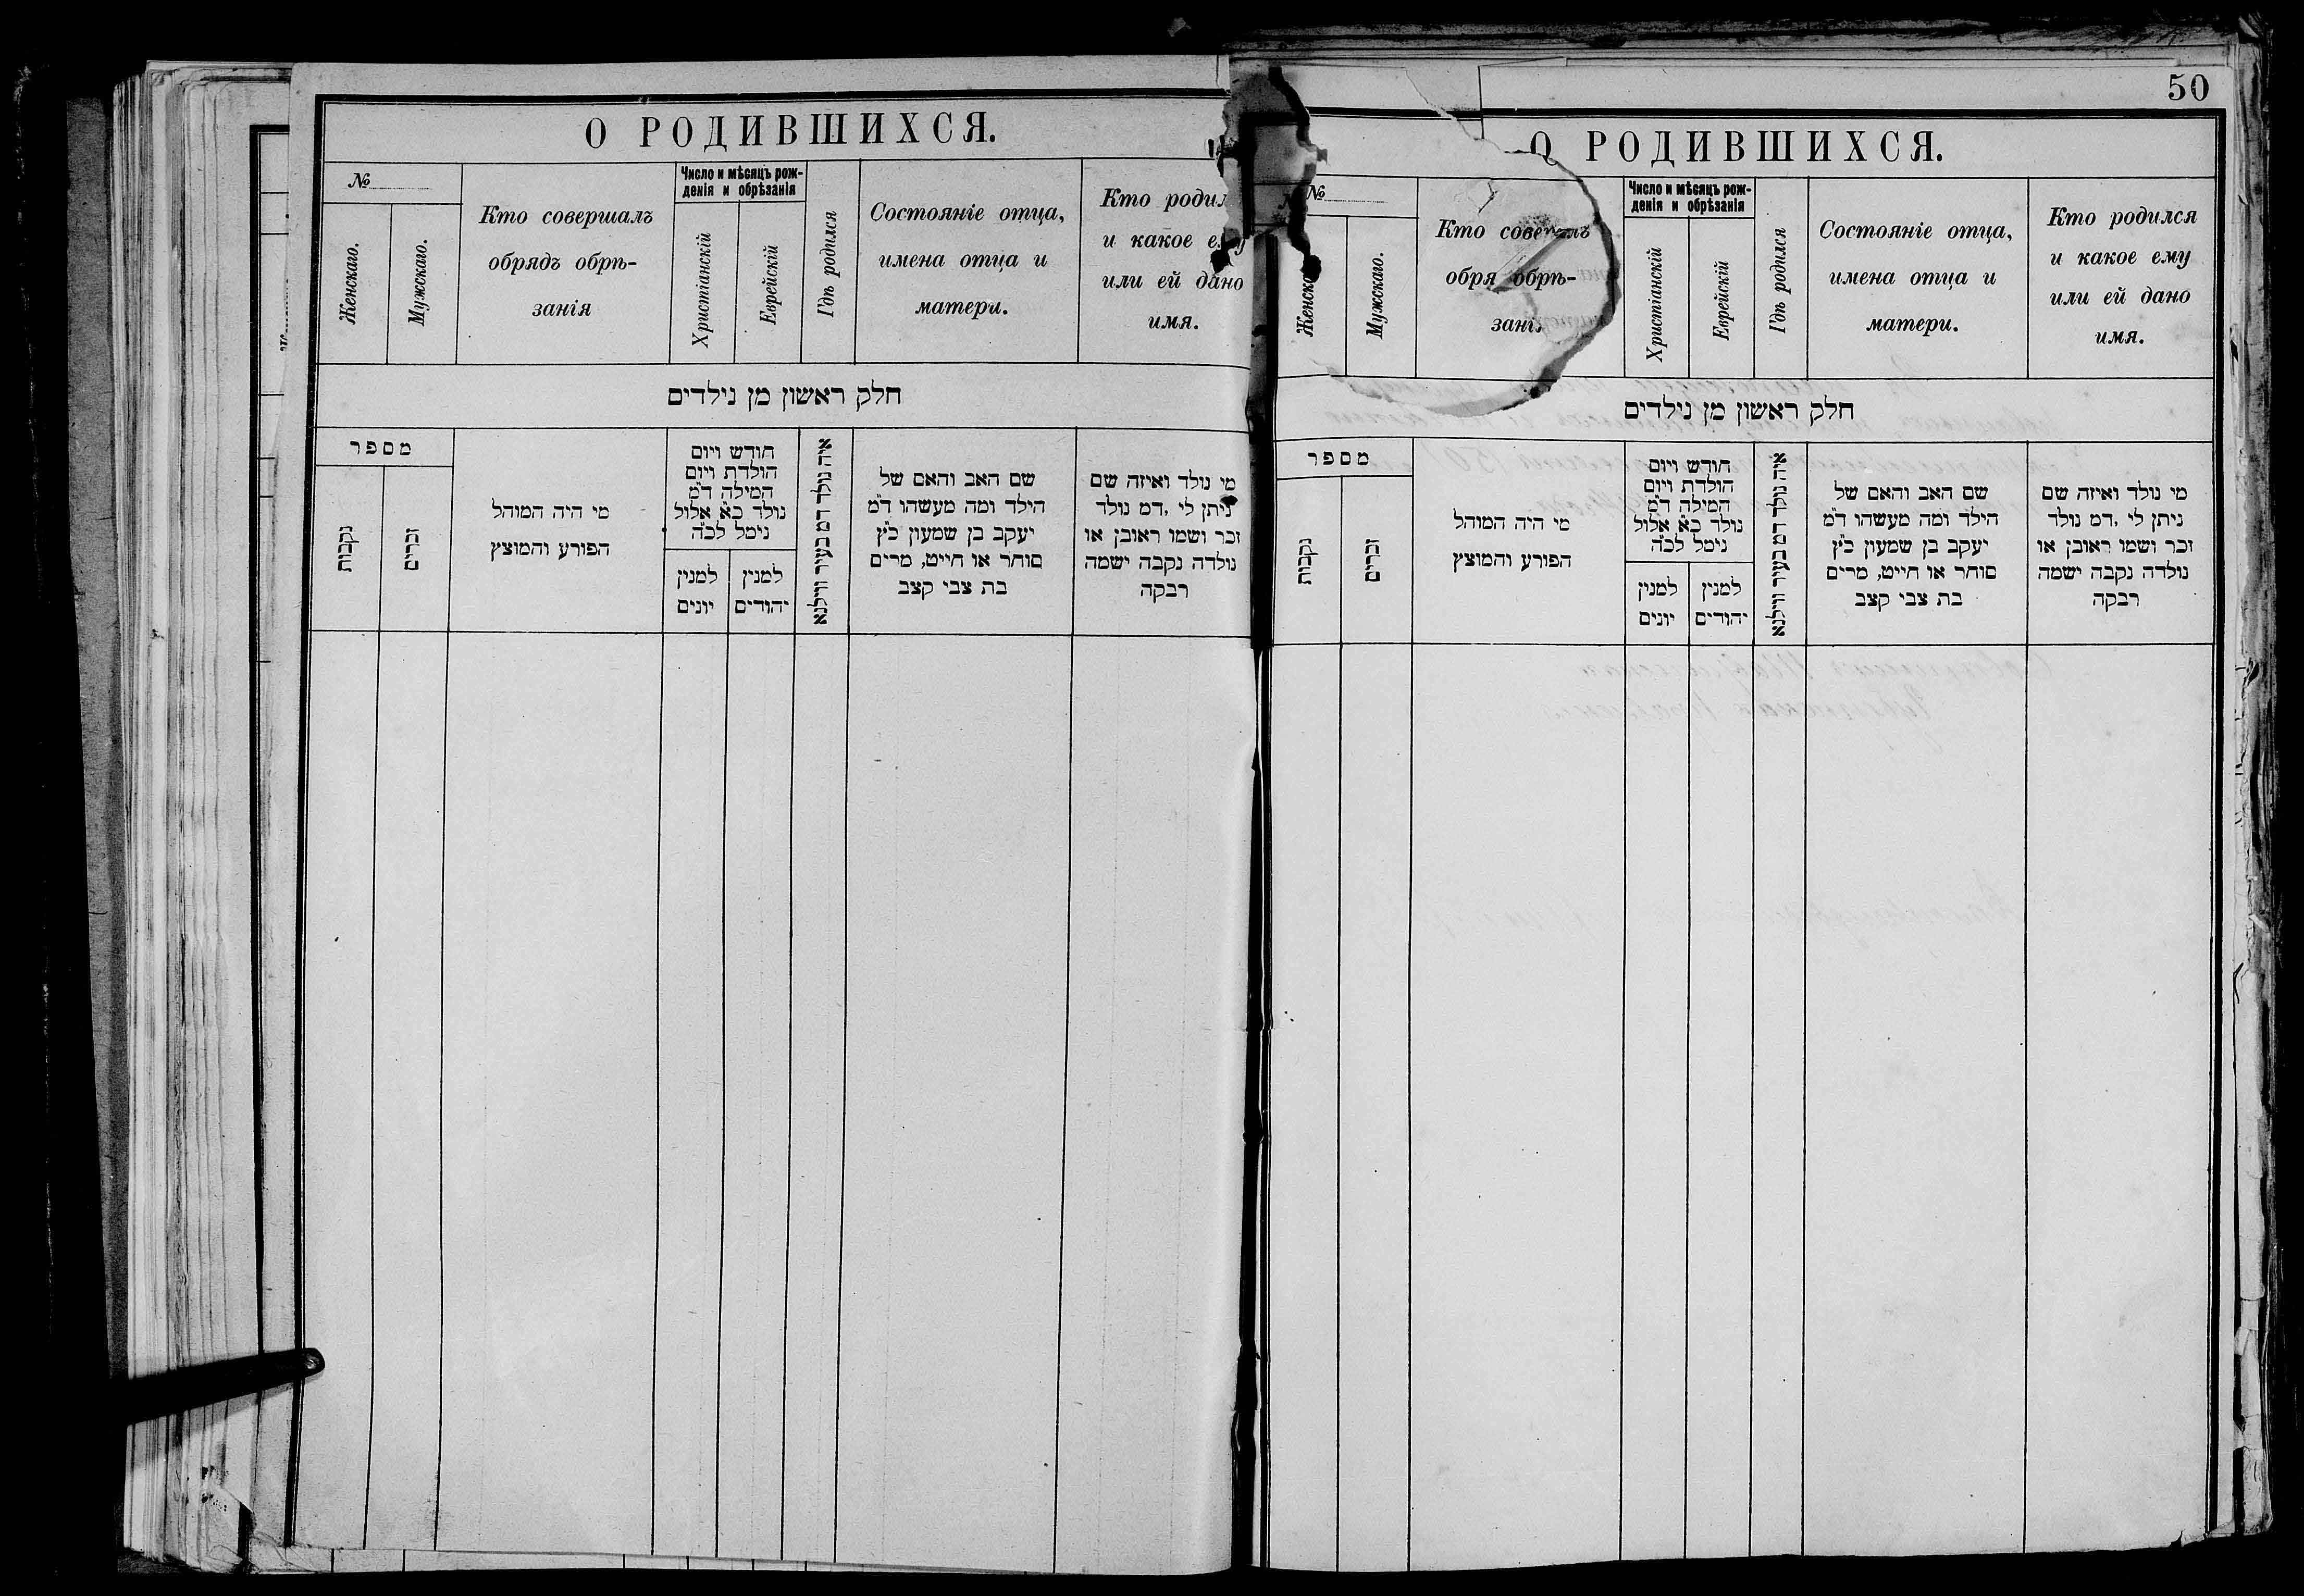 О РОДИВШИХСЯ.
№
Женскаго.
Мужскаго.
Кто совершалъ
обрядъ обрѣ-
занія
Число и мѣсяцъ рож-
денія и обрѣзанія
Христіанскій
Еврейскій
Гдѣ родился
Состояніе отца,
имена отца и
матери.
Кто родил
и какое ему
или ей дано
имя.
חלק ראשון מן נילדים
מספר
נקבות
זכרים
מי היה המוהל
הפורע והמוצץ
חודש ויום
הולדת ויום
המילה ד״מ
נולד כ״א אלול
נימל לכ״ה
למנין
יונים
למנין
יהודים
איה נולד דמ בעיר ווילנא
שם האב והאם של
הילד ומה מעשהו ד״מ
יעקב בן שמעון כ״ץ
סוחר או חייט, מרים
בת צבי קצב
מי נולד ואיזה שם
ניתן לי, דמ נולד
זכר ושמו ראובן או
נולדה נקבה ישמה
רבקה
50
О РОДИВШИХСЯ.
№
Женско
Мужскаго.
Кто соверш лъ
обря обрѣ-
зані
Число и мѣсяцъ рож-
денія и обрѣзанія
Христіанскій
Еврейскій
Гдѣ родился
Состояніе отца,
имена отца и
матери.
Кто родился
и какое ему
или ей дано
имя.
חלק ראשון מן נילדים
מספר
נקבות
זכרים
מי היה המוהל
הפורע והמוצץ
חודש ויום
הולדת ויום
המילה ד״מ
נולד כ״א אלול
נימל לכ״ה
למנין
יונים
למנין
יהודים
איה נולד דמ בעיר ווילנא
שם האב והאם של
הילד ומה מעשהו ד״מ
יעקב בן שמעון כ״ץ
סוחר או חייט, מרים
בת צבי קצב
מי נולד ואיזה שם
ניתן לי, דמ נולד
זכר ושמו ראובן או
נולדה נקבה ישמה
רבקה